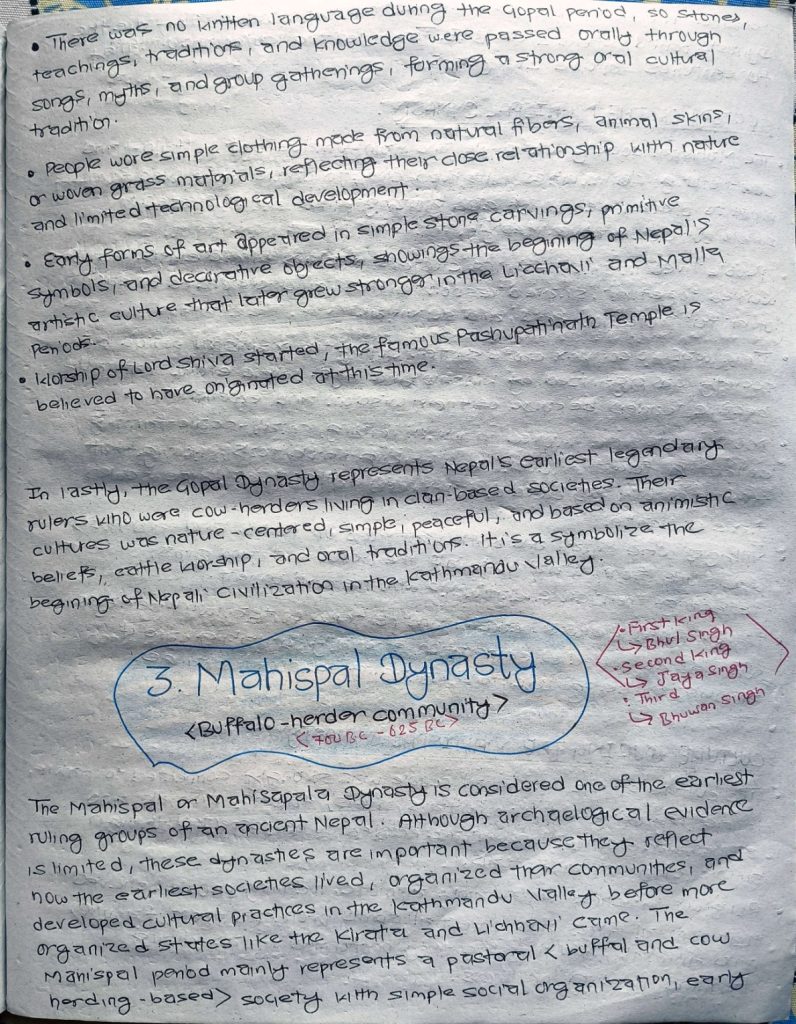 • There was no written language during the Gopal period, so stones,
teachings, traditions, and knowledge were passed orally through
songs, myths, and group gatherings, forming a strong oral cultural
tradition.
• People wore simple clothing made from natural fibers, animal skins,
or woven grass materials, reflecting their close relationship with nature
and limited technological development.
• Early forms of art appeared in simple stone carvings, primitive
symbols, and decorative objects, showings the begining of Nepal's
artistic culture that later grew stronger in the Licchavi and Malla
Periods.
• Worship of Lord Shiva started, the famous Pashupatinath Temple is
believed to have originated at this time.
In lastly, the Gopal Dynasty represents Nepal's earliest legendary
rulers who were cow-herders living in clan-based societies. Their
cultures was nature-centered, simple, peaceful, and based on animistic
beliefs, cattle worship, and oral traditions. It is a symbolize the
begining of Nepali civilization in the Kathmandu Valley.
3. Mahispal Dynasty
<Buffalo-herder community>
<700 BC - 625 BC>
• First King
↳ Bhul Singh
• Second King
↳ Jaya Singh
• Third
↳ Bhuwan Singh
The Mahispal or Mahisapala Dynasty is considered one of the earliest
ruling groups of an ancient Nepal. Although archaelogical evidence
is limited, these dynasties are important because they reflect
how the earliest societies lived, organized their communities, and
developed cultural practices in the Kathmandu Valley before more
organized states like the Kirata and Lichhavi came. The
Mahispal period mainly represents a pastoral < buffal and cow
herding-based> society with simple social organization, early